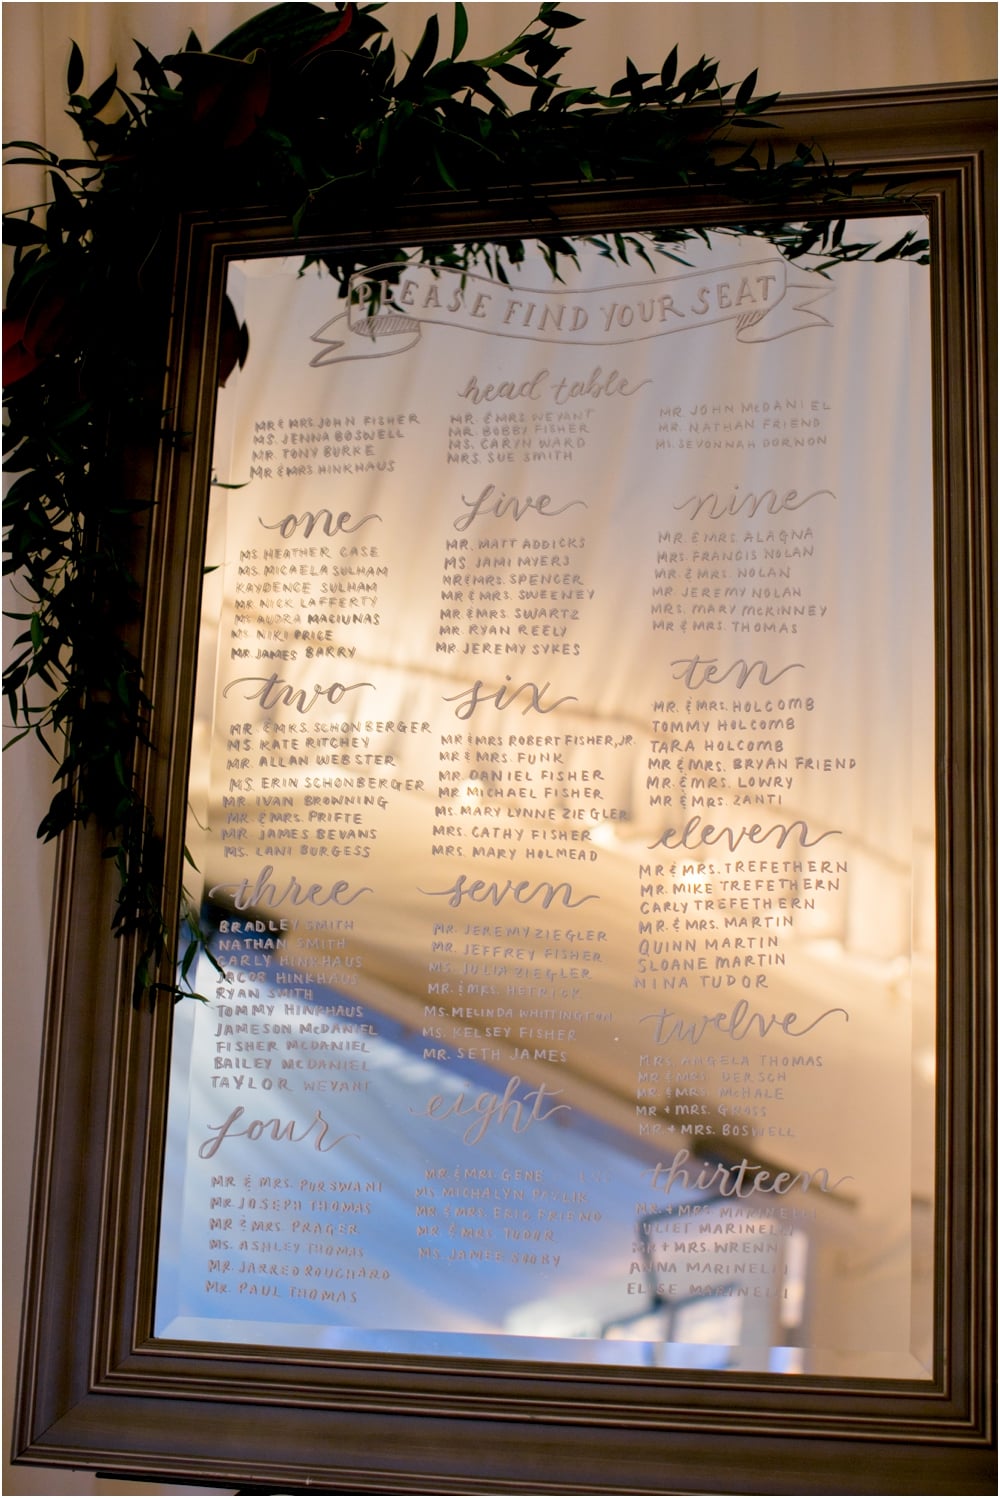 PLEASE FIND YOUR SEAT
head table
MR & MRS JOHN FISHER
MS. JENNA BOSWELL
MR. TONY BURKE
MR & MRS HINKHAUS
MR. & MRS WEYANT
MR. BOBBY FISHER
MS. CARYN WARD
MRS. SUE SMITH
MR. JOHN McDANIEL
MR. NATHAN FRIEND
MS. SEVONNAH DORNON
one
MS. HEATHER CASE
MS. MICAELA SULHAM
KAYDENCE SULHAM
MR NICK LAFFERTY
MS. AUDRA MACIUNAS
MS. NIKI PRICE
MR. JAMES BARRY
two
MR. & MRS. SCHONBERGER
MS. KATE RITCHEY
MR. ALLAN WEBSTER
MS. ERIN SCHONBERGER
MR. IVAN BROWNING
MR. & MRS. PRIFTE
MR. JAMES BEVANS
MS. LANI BURGESS
three
BRADLEY SMITH
NATHAN SMITH
CARLY HINKHAUS
JACOB HINKHAUS
RYAN SMITH
TOMMY HINKHAUS
JAMESON McDANIEL
FISHER McDANIEL
BAILEY McDANIEL
TAYLOR WEYANT
four
MR & MRS. PURSWANI
MR. JOSEPH THOMAS
MR & MRS. PRAGER
MS. ASHLEY THOMAS
MR. JARRED BOUCHARD
MR. PAUL THOMAS
five
MR. MATT ADDICKS
MS JAMI MYERS
MR & MRS. SPENCER
MR & MRS. SWEENEY
MR & MRS. SWARTZ
MR. RYAN REELY
MR. JEREMY SYKES
six
MR & MRS ROBERT FISHER, JR.
MR & MRS. FUNK
MR. DANIEL FISHER
MR. MICHAEL FISHER
MS. MARY LYNNE ZIEGLER
MRS. CATHY FISHER
MRS. MARY HOLMEAD
seven
MR. JEREMY ZIEGLER
MR. JEFFREY FISHER
MS. JULIA ZIEGLER
MR. & MRS. HETRICK
MS. MELINDA WHITTINGTON
MS. KELSEY FISHER
MR. SETH JAMES
eight
MR & MRS. GENE
MS. MICHALYN
MR. & MRS. ERIC FRIEND
MR & MRS. TUDOR
MS. JAMEE
nine
MR. & MRS. ALAGNA
MRS. FRANCIS NOLAN
MR. & MRS. NOLAN
MR. JEREMY NOLAN
MRS. MARY McKINNEY
MR & MRS. THOMAS
ten
MR. & MRS. HOLCOMB
TOMMY HOLCOMB
TARA HOLCOMB
MR & MRS. BRYAN FRIEND
MR. & MRS. LOWRY
MR & MRS. ZANTI
eleven
MR & MRS. TREFETHERN
MR. MIKE TREFETHERN
CARLY TREFETHERN
MR. & MRS. MARTIN
QUINN MARTIN
SLOANE MARTIN
NINA TUDOR
twelve
MRS. ANGELA THOMAS
MR & MRS. DERSCH
MR & MRS. McHALE
MR + MRS. GROSS
MR. + MRS. BOSWELL
thirteen
MR. + MRS. MARINELLI
JULIET MARINELLI
MR + MRS. WRENN
ANNA MARINELLI
ELISE MARINELLI